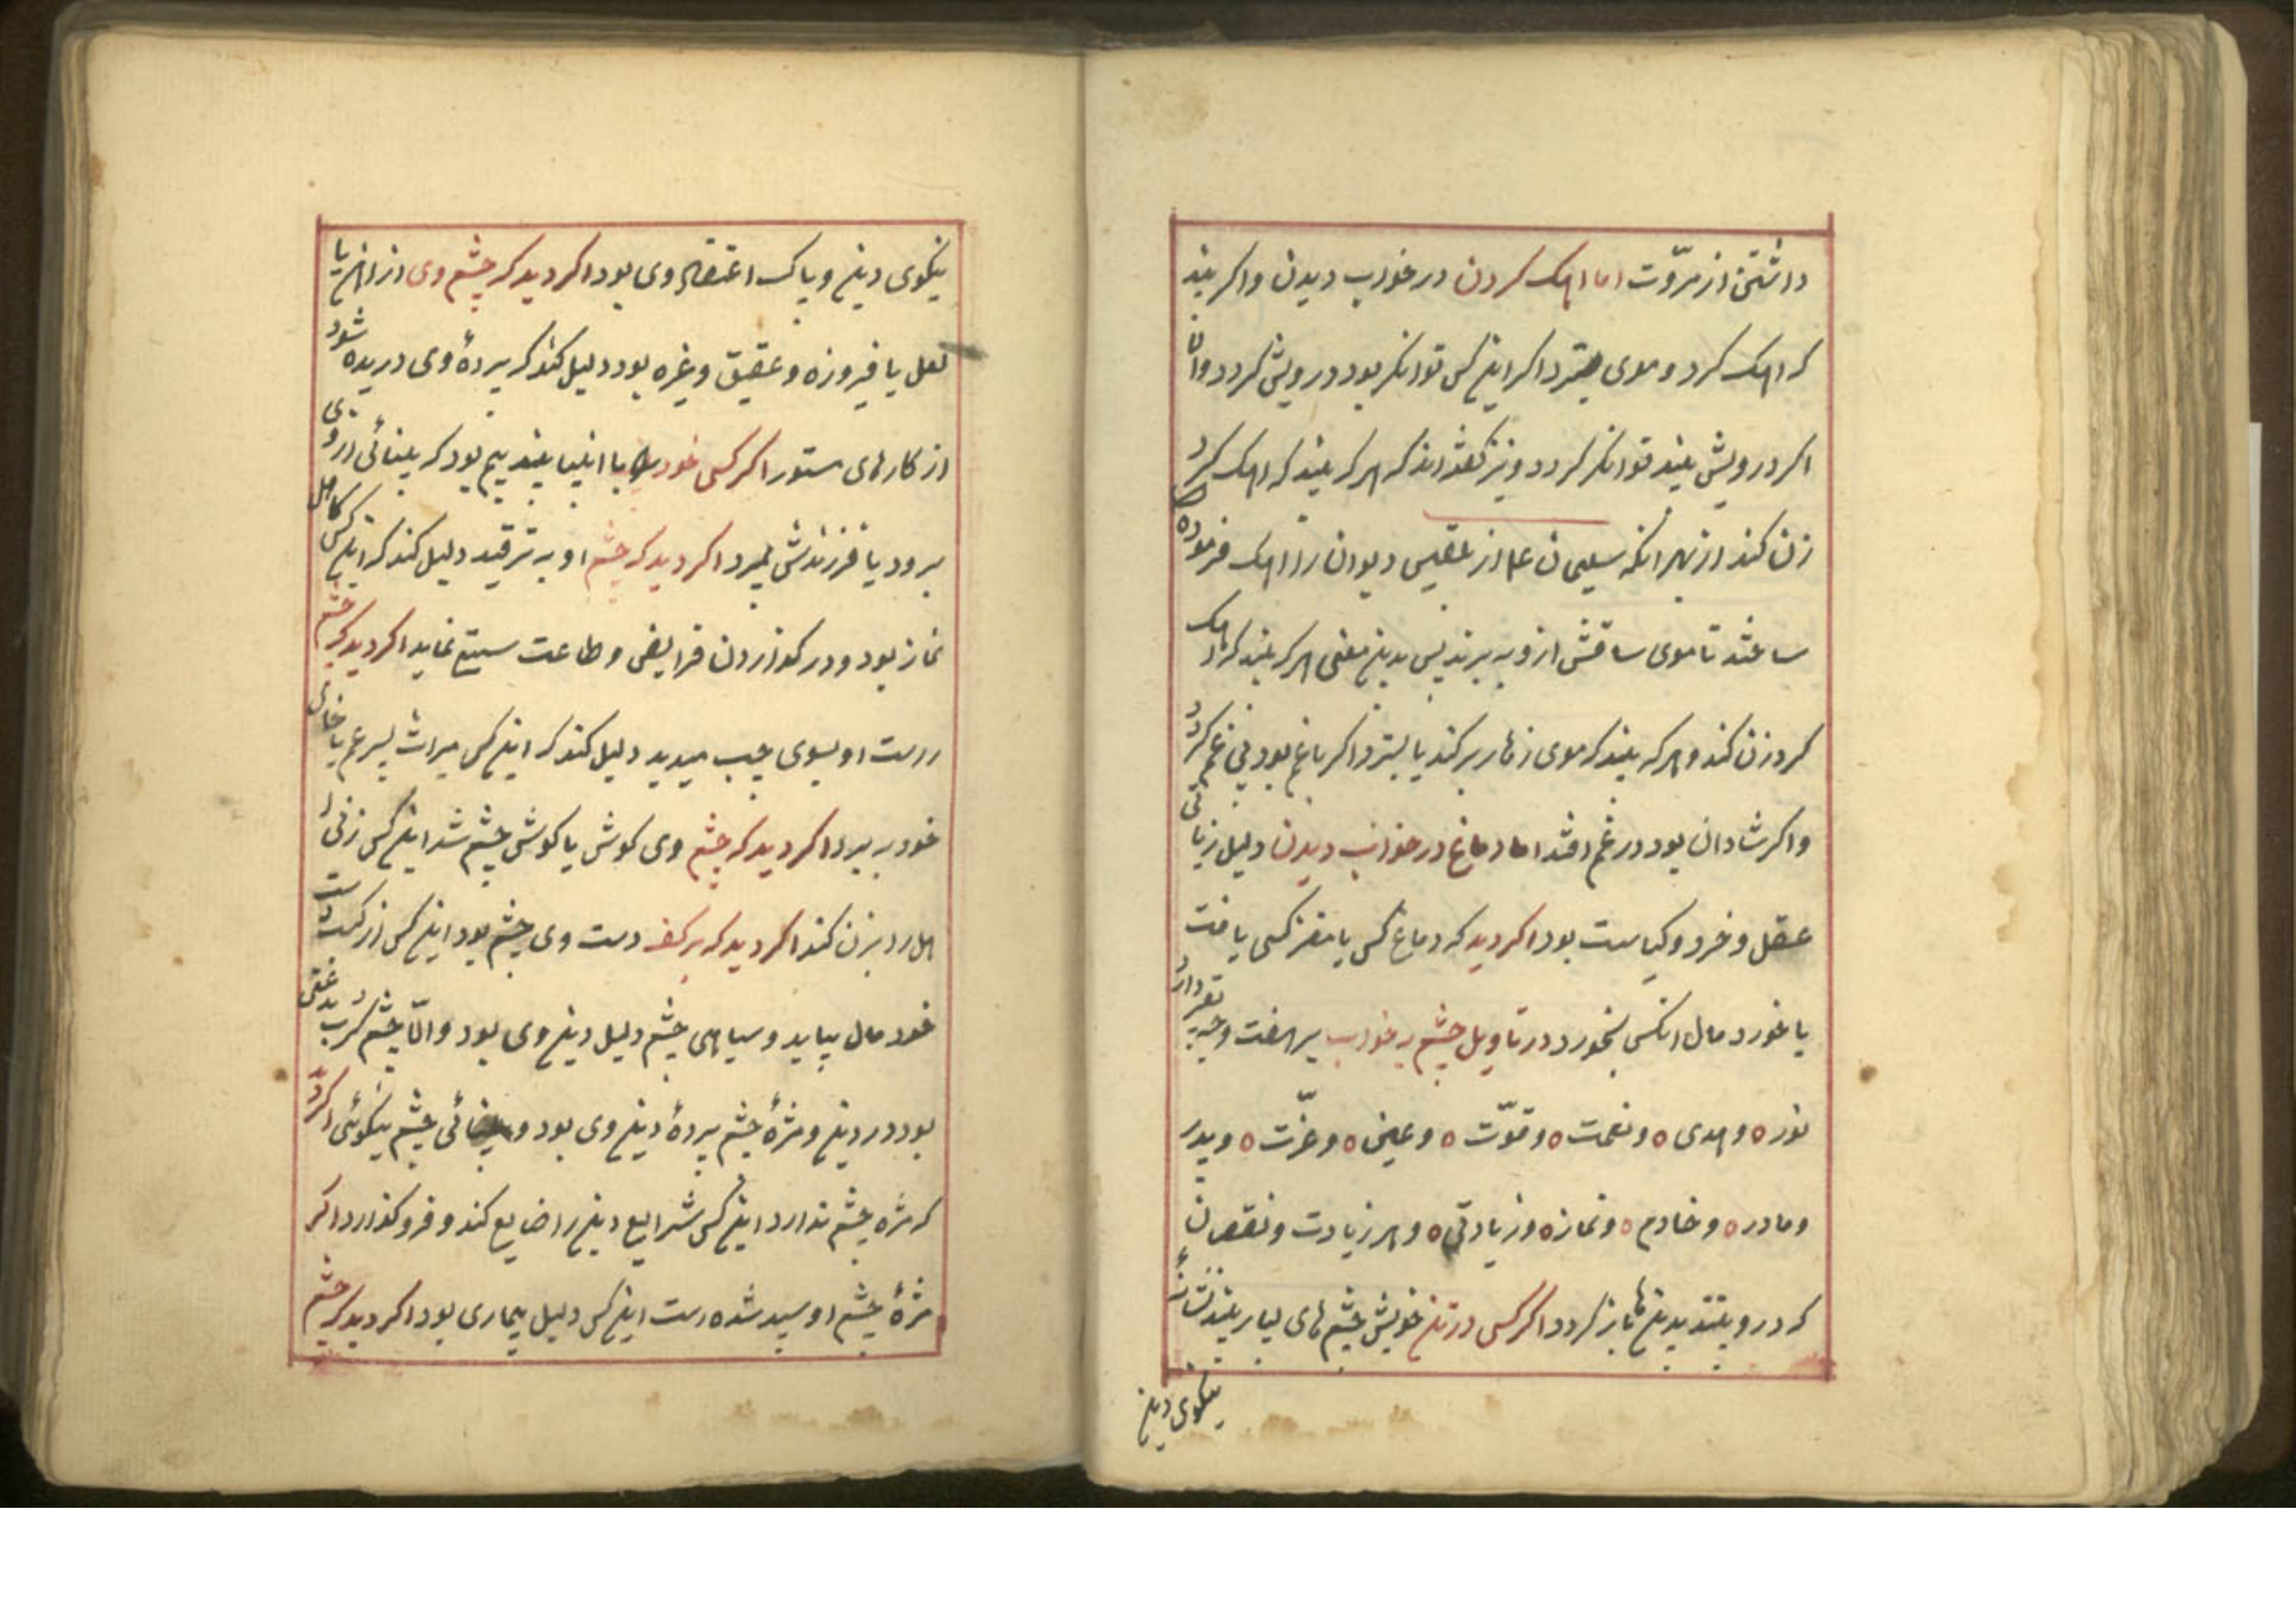 داشتن از مروّت اما اهک کردن در خواب دیدن واکر بیند
که اهک کرد و موی بسترد اکر این کس توانکر بود درویش کردد وان
اکر درویش بیند توانکر کردد و نیز کفته اند که هر که بیند که اهک کرد
زن کند از بهر انکه سلیمان ع م از بلقیس دیوان را اهک فرموده
ساختند تا موی ساقش ازو به برند پس بدین معنی هر که بیند که اهک
کرد زن کند و هر که بیند که موی زهار برکند یا بسترد اکر با غم بود بی غم کردد
واکر شادان بود در غم افتد اما دماغ در خواب دیدن دلیل زیادتی
عقل و خرد و کیاست بود اکر دید که دماغ کسی یا مغز کسی یافت
یا خورد مال انکس بخورد در تاویل چشم به خواب بر هفت وجه تعبیر دارد
نور ه و هدی ه و نعمت ه و قوّت ه و عین ه و عزّت ه و پدر
و مادر ه و خادم ه و نماز ه و زیادتی ه و هر زیادت و نقصان
که درو بینند بدینها باز کردد اکر کسی در تن خویش چشم های بسیار بیند نشانهٔ
نیکوی دین
نیکوی دین و پاک اعتقاد وی بود اکر دید که چشم وی از اهن یا
لعل یا فیروزه و عقیق و غیره بود دلیل کند که پردهٔ وی دریده شود
از کارهای مستور اکر کسی خود را نابینا بیند بیم بود که بینائی از وی
برود یا فرزندش بمیرد اکر دید که چشم او به ترقید دلیل کند که این کس کاهل
نماز بود و در کذاردن فرایض و طاعت سستی نماید اکر دید که چشم
راست او بسوی چپ میدید دلیل کند که این کس میراث پسر عم یا خال
خود به برد اکر دید که چشم وی کوش یا کوش چشم شد این کس زنی را
بزن کند اکر دید که بر کف دست وی چشم بود این کس از کسب دست
خود مال بیابد و سیاهی چشم دلیل دین وی بود و الّا چشم کرب بدعتی
بود در دین و مژهٔ چشم پردهٔ دین وی بود و بینائی چشم نیکوئی اکر دید
که مژه چشم ندارد این کس شرایع دین را ضایع کند و فرو کذارد اکر
مژهٔ چشم او سپید شده است این کس دلیل بیماری بود اکر دید که چشم